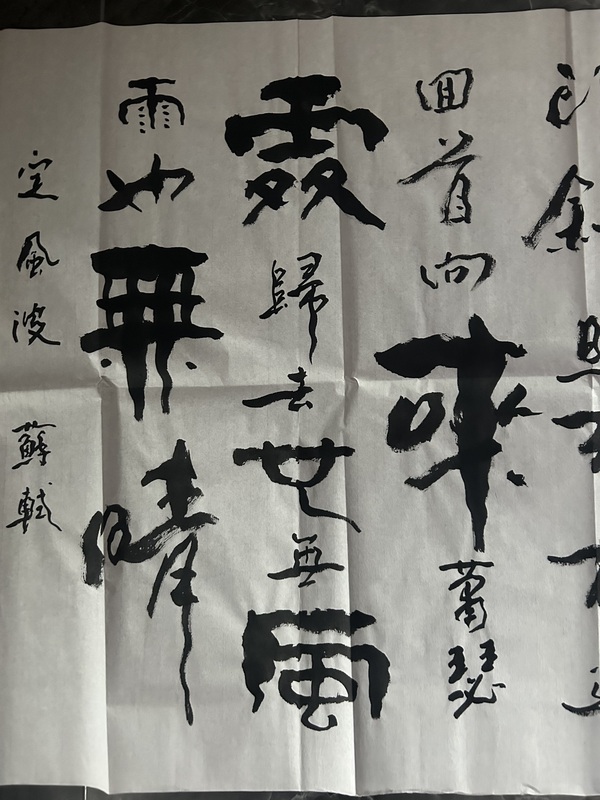 回首向來蕭瑟
處歸去也無風
雨也無晴
定風波 蘇軾